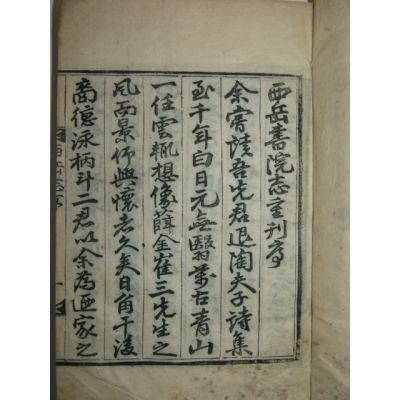 西岳書院志重刊序
余嘗讀吾先君退陶夫子詩集
至千年白日元無翳萬古青山
一任雲輒想像薛金崔三先生之
風而景仰興懷者久矣日角干後
裔德泳柄斗二君以余為家之